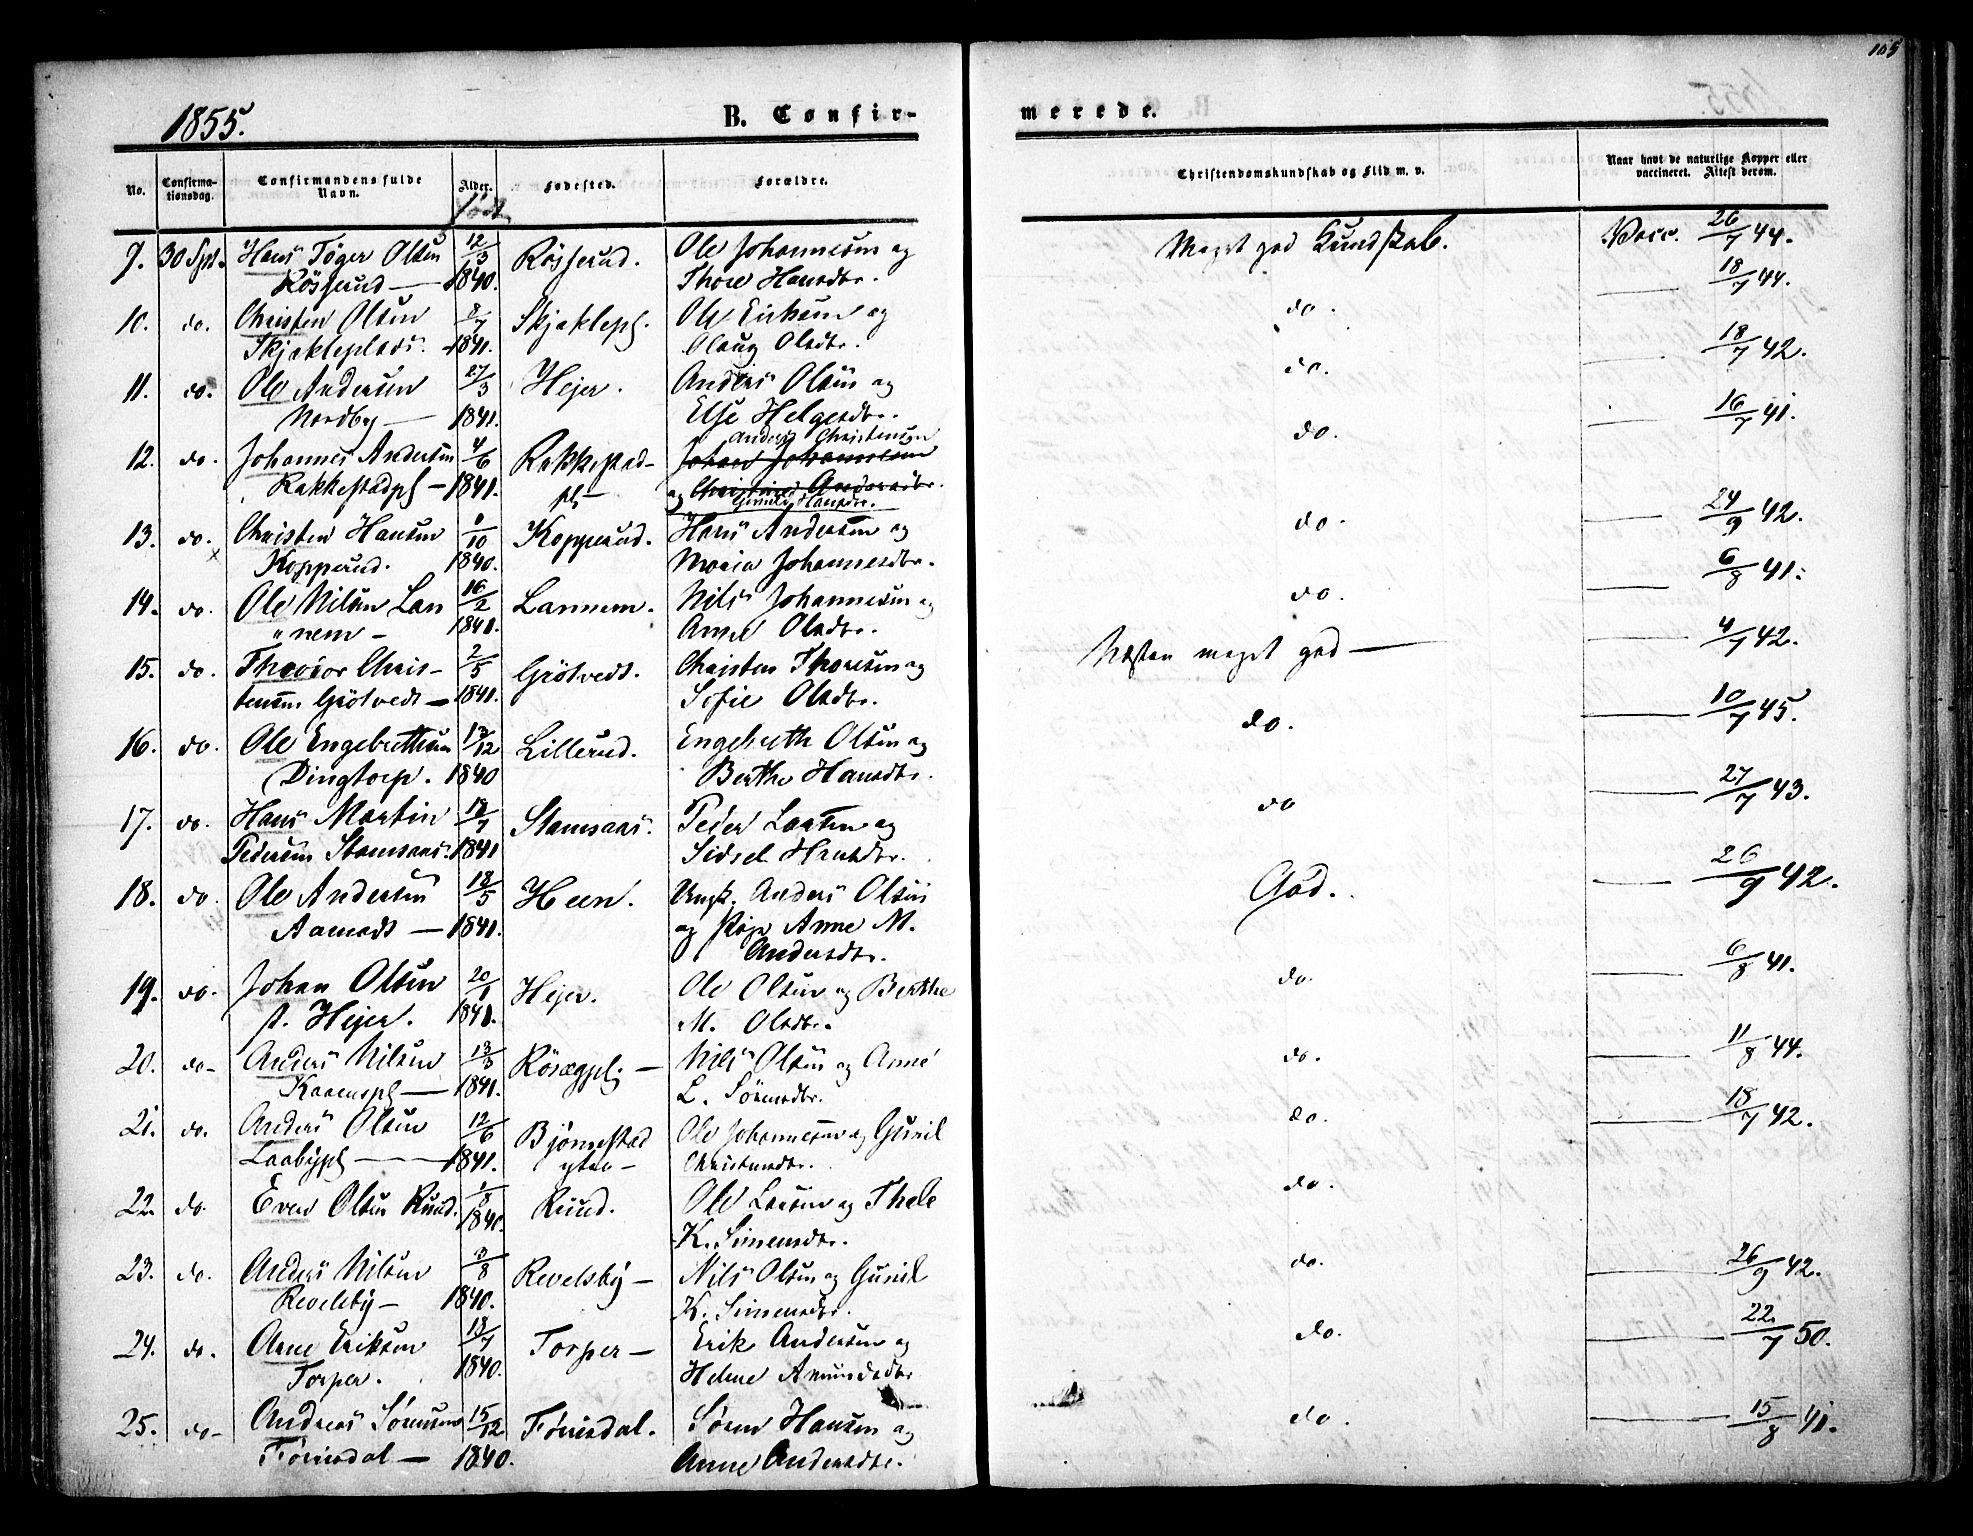 105
1855.
B. Confir-
merede.
No.
Confirma-
tionsdag.
Confirmandens fulde
Navn.
Alder.
född
Fødested.
Forældre.
Christendomskundskab og Flid m. v.
Naar havt de naturlige Kopper eller
vaccineret. Attest derom.
9. 30 Spt. Hans Töger Olsen 12/3 Rösserud. Ole Johannesen og Meget god Kundskab. Vacc. 26/7 44.
Rösserud — 1840. Thore Hansdtr.
10. do. Christen Olsen 8/7 Skjæklepl. Ole Eriksen og do. — 18/7 44.
Skjækleplads. 1841. Olaug Olsdtr.
11. do. Ole Andersen 27/3 Hejer. Anders Olsen og do. — 18/7 42.
Nordby — 1841. Else Helgesdtr.
Anders Christensen
12. do. Johannes Andersen 4/6 Rakkestad- Johan Johannesen do. — 16/7 41.
Rakkestadpl — 1841. pl — og Christine Andersdtr.
Gunild Hansdtr.
13. do. Christen Hansen /10 Kopperud. Hans Andersen og do. — 24/9 42.
Kopperud. 1840. Maria Johannesdtr.
14. do. Ole Nilsen Lan 16/2 Lannem. Nils Johannesen og do. — 6/8 41.
" nem — 1841. Anne Olsdtr.
15. do. Theodor Chris- 2/5 Grötvedt. Christen Thoresen og Næsten meget god — 4/7 42.
tensen Grötvedt — 1841. Sofie Olsdtr.
16. do. Ole Engebrettsen /12 Lillerud. Engebreth Olsen og do. — 10/7 45.
Dingtorp. 1840 Berthe Hansdtr.
17. do. Hans Martin 12/7 Stamsaas. Peder Larsen og do — 27/7 43.
Pedersen Stamsaas. 1841 Sidsel Hansdtr.
18. do Ole Andersen 18/5 Heen. Ungk. Anders Olsen God. — 26/9 42.
Aamodt — 1841. og Pige Anne M.
Andersdtr.
19. do. Johan Olsen 20/1 Hejer. Ole Olsen og Berthe do. — 6/8 41.
st. Hejer. 1841. M. Olsdtr.
20. do — Anders Nilsen 13/3 Rösægpl; — Nils Olsen og Anne do. — 11/8 44.
Kaaenspl — 1841. L. Sörensdtr.
21. do. Anders Olsen 12/6 Björnestad Ole Johannesen og Gunil do. — 18/7 42.
Laabypl — 1841. ytre — Christensdtr.
22. do. Even Olsen Ruud. /8 Ruud. Ole Larsen og Thale do.
1840. K. Simensdtr.
23. do. Anders Nilsen 3/8 Revelsby — Nils Olsen og Gunil do. — 26/9 42.
Revelsby — 1840. K. Simensdtr.
24. do. Arne Eriksen 18/7 Torper — Erik Andersen og do. — 22/7 50.
Torper. 1840. Helene Amundsdtr
25. do — Andreas Sörensen 15/12 Förrisdal. Sören Hansen og do. — 15/8 41.
Förrisdal — 1840. Anne Andersdtr.